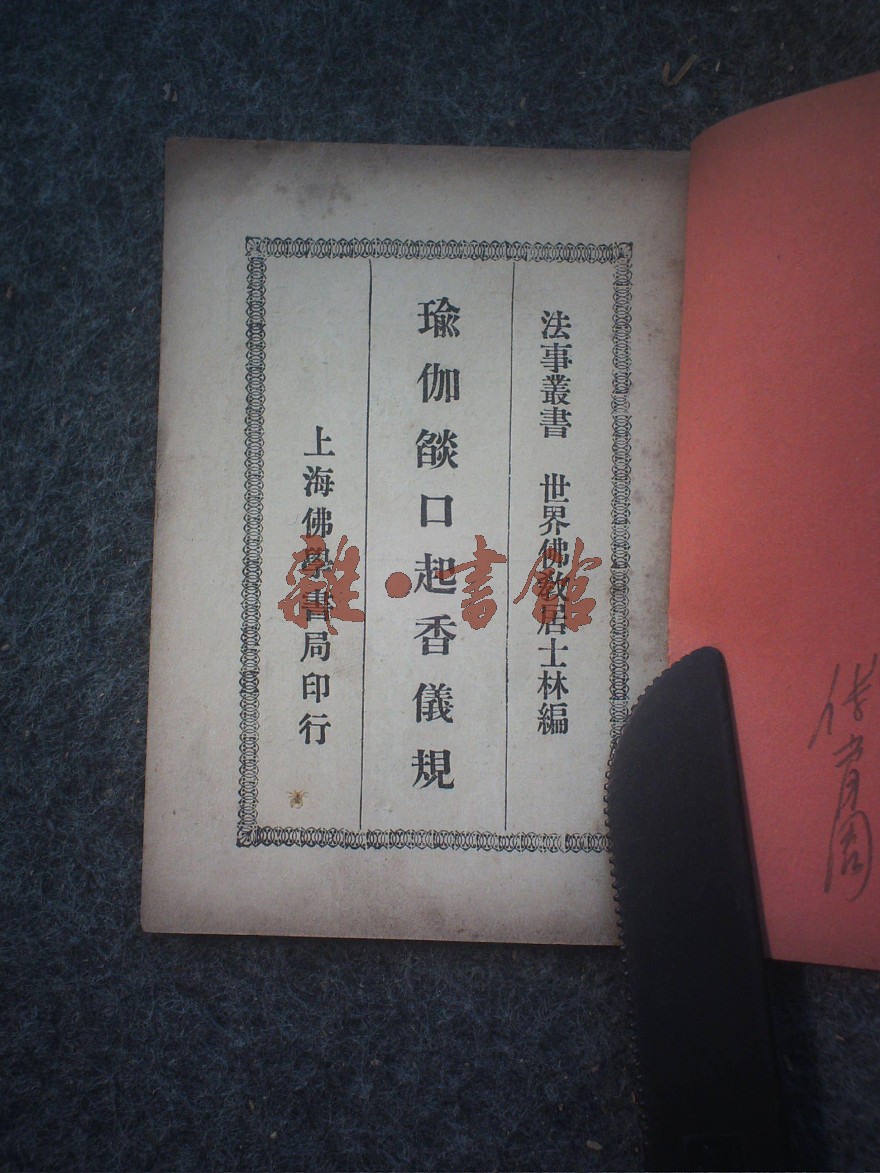 法事叢書　世界佛敎居士林編
瑜伽燄口起香儀規
上海佛學書局印行
雜·書館